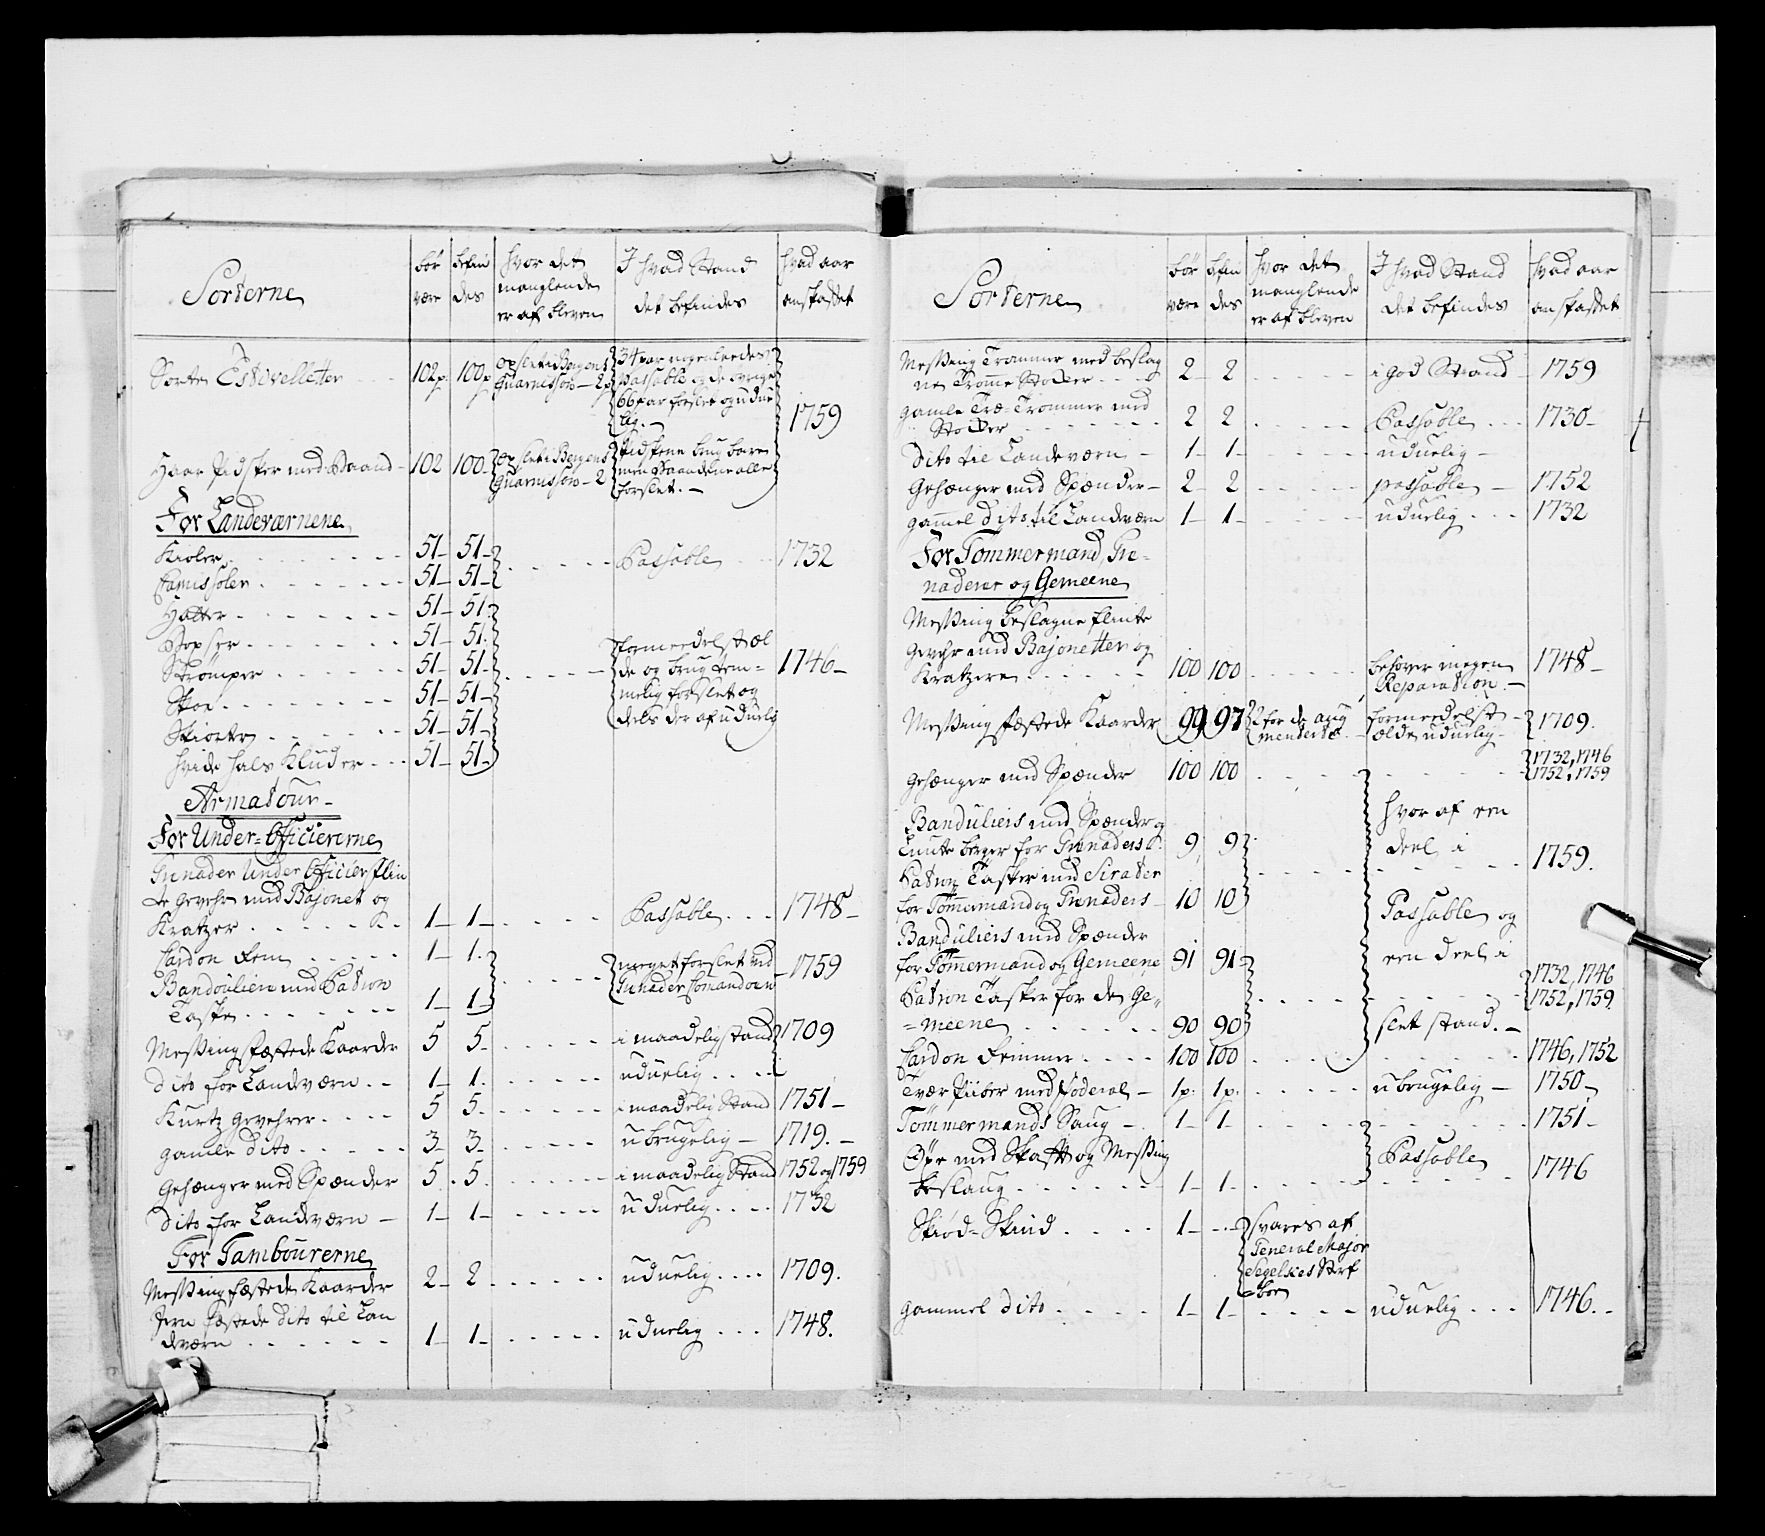 Sorterne | bør være | befindes | hvor det manglende er af bleven | I hvad Stand det befindes | hvad aar anskaffet
Sorte Estivelletter | 102 p. | 100 p. | opslet i Bergens Guarnisson - 2 p. | 34 par nogenleedes passable og de øvrige 66 par forslet og udue lig. - | 1759
Haar Pidsker med Baand - | 102 | 100 - | opslet i Bergens Guarnisson - 2 | Pidskene brug bare men Baandene alle forslet. -
For Landeværnene
Kioler | 51 - | 51 - | Passable | 1732
Camissoler | 51 - | 51 -
Hatter | 51 - | 51.
Buxser | 51 - | 51.
Strømper | 51 - | 51 - | formedelst æl de og brug tem= melig forslet og deels der af uduelig | 1746 -
Skoe | 51 - | 51 -
Skiorter | 51 - | 51 -
hvide hals Kluder | 51 - | 51 -
Armatour -
For Under=Officiererne
Grenader Under Officier flin
te gevehr med Bajonet og
Kratzer | 1 - | 1 - | Passable | 1748 -
Cardon Rem | 1 - | 1.
Bandoulier med Patron
Taske | 1 - | 1 - | meget forslet ved Grenader Comandoen | 1759
Messing fæstede Kaarder | 5 | 5 - | i maadelig stand | 1709
dito for Landværn | 1 - | 1. | uduelig
Kurtz gevehrer | 5 | 5. | i maadelig Stand | 1751 -
gamle dito | 3 - | 3 - | ubrugelig - | 1719. -
Gehænger med Spænder | 5. | 5. | i maadelig Stand | 1752 og 1759
dito for Landværn - | 1 - | 1 - | uduelig | 1732
For Tambourerne
Messing fæstede Kaarder | 2 - | 2 | uduelig | 1709.
Jern fæstede dito til Lan
dværn | 1 - | 1 - | uduelig | 1748.
Sorterne | bør være | befindes | hvor det manglende er af bleven | I hvad Stand det befindes | hvad aar anskaffet
Messing Trommer med beslag
ne Tromme Stokker | 2 - | 2 | i god Stand | 1759
gamle Træ=Trommer med
Stokker | 2 | 2 | Passable | 1730 -
dito til Landeværn - | 1 - | 1 - | uduelig -
Gehænger med Spænder - | 2 - | 2 | passable - | 1752
gammel dito til Landværn | 1 - | 1 - | uduelig | 1732
For Tømmermand, Gre=
naderer og Gemeene
Messing beslagne flinte
Gevehr med Bajonetter og
Kratzere | 100 | 100 | behøver megen Reparation. - | 1748 -
Messing fæstede Kaarder | 99 | 97 | 2 for de aug menterte | formedelst ælde uduelig - | 1709.
Gehænger med Spænder | 100 | 100 | 1732, 1746 1752, 1759
Banduliers med Spænder og
Lunte berger for Grenaders | 9. | 9 | hvor af een deel i | 1759.
Patron Tasker med Sirater
for Tømmermand og Grenaders - | 10 | 10 | Passable og
Banduliers med Spænder
for Tømmermand og Gemeene | 91 | 91 - | een deel i | 1732, 1746 1752, 1759
Patron Tasker for de Ge=
=meene | 90 | 90 | slet stand. -
Cardon Remmer | 100 | 100 | 1746, 1752
Tvær Piiber med foderal - | 1 p. | 1 p. | ubrugelig - | 1750 -
Tømmermands Saug - | 1 - | 1 - | 1751 -
Øxe med Skaft og Messing
beslaug | 1 - | 1 - | Passable | 1746
Skiød=Skind | 1 - | svares af General Major Segelkes Sterf boe
gammel dito | 1 - | 1 - | uduelig | 1746. -